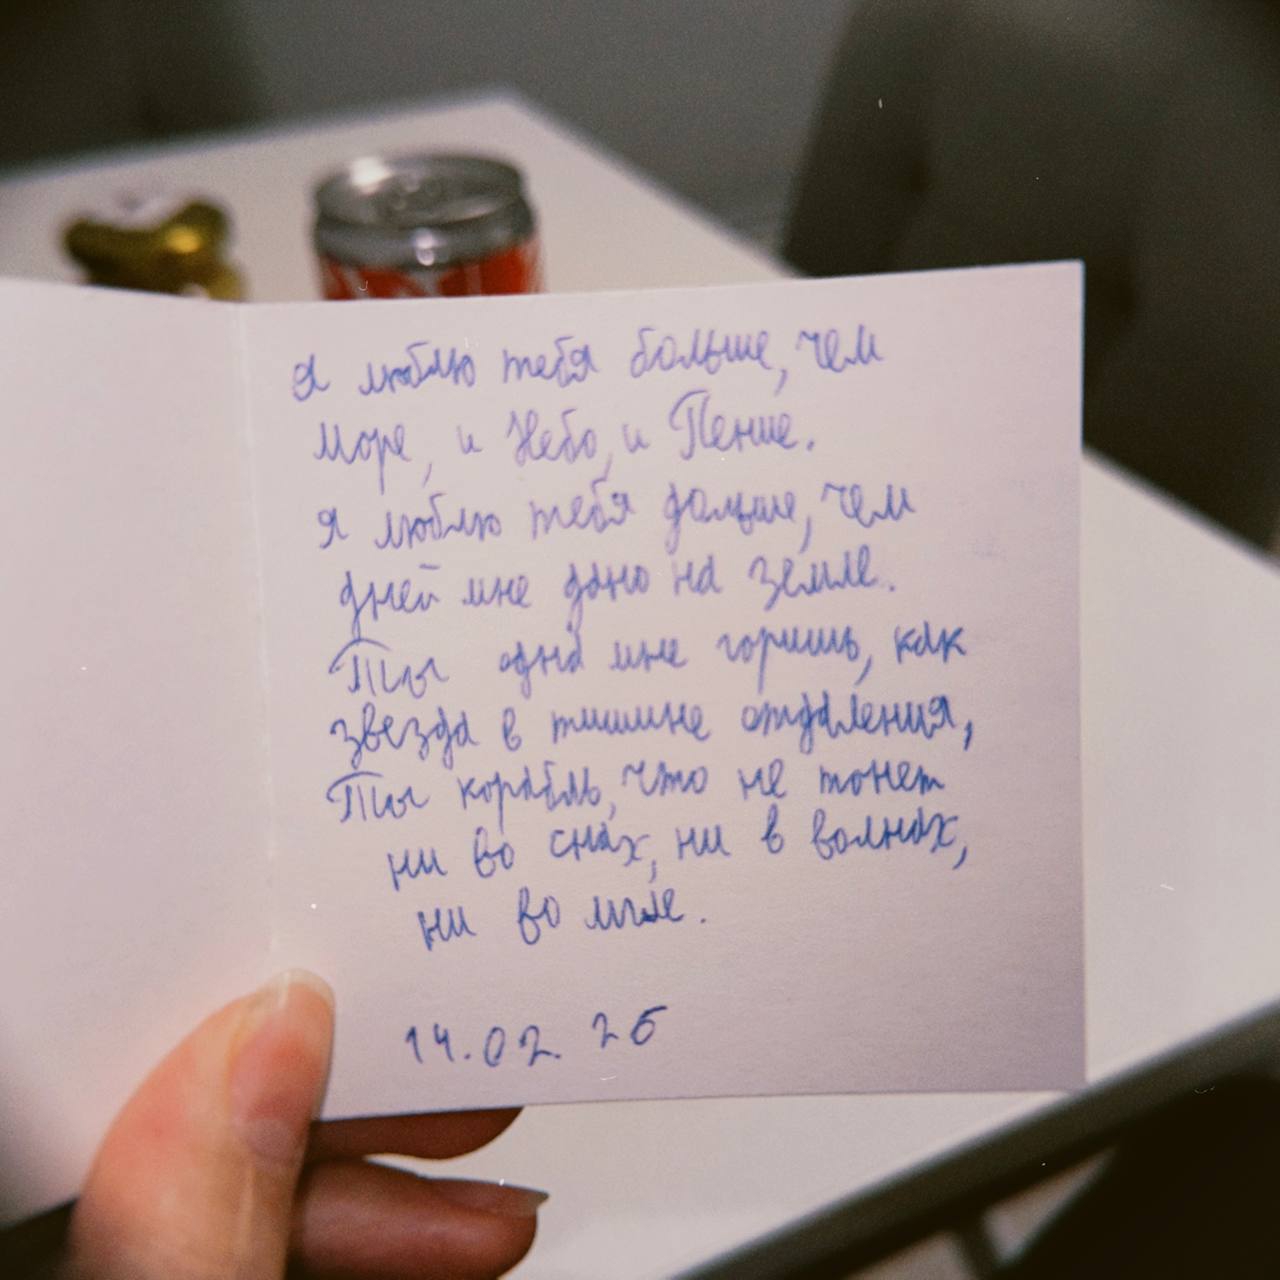 Я люблю тебя больше, чем
Море, и Небо, и Пение.
Я люблю тебя дольше, чем
дней мне дано на земле.
Ты одна мне горишь, как
звезда в тишине отдаления,
Ты корабль, что не тонет
ни во снах, ни в волнах,
ни во мгле.
14.02.25